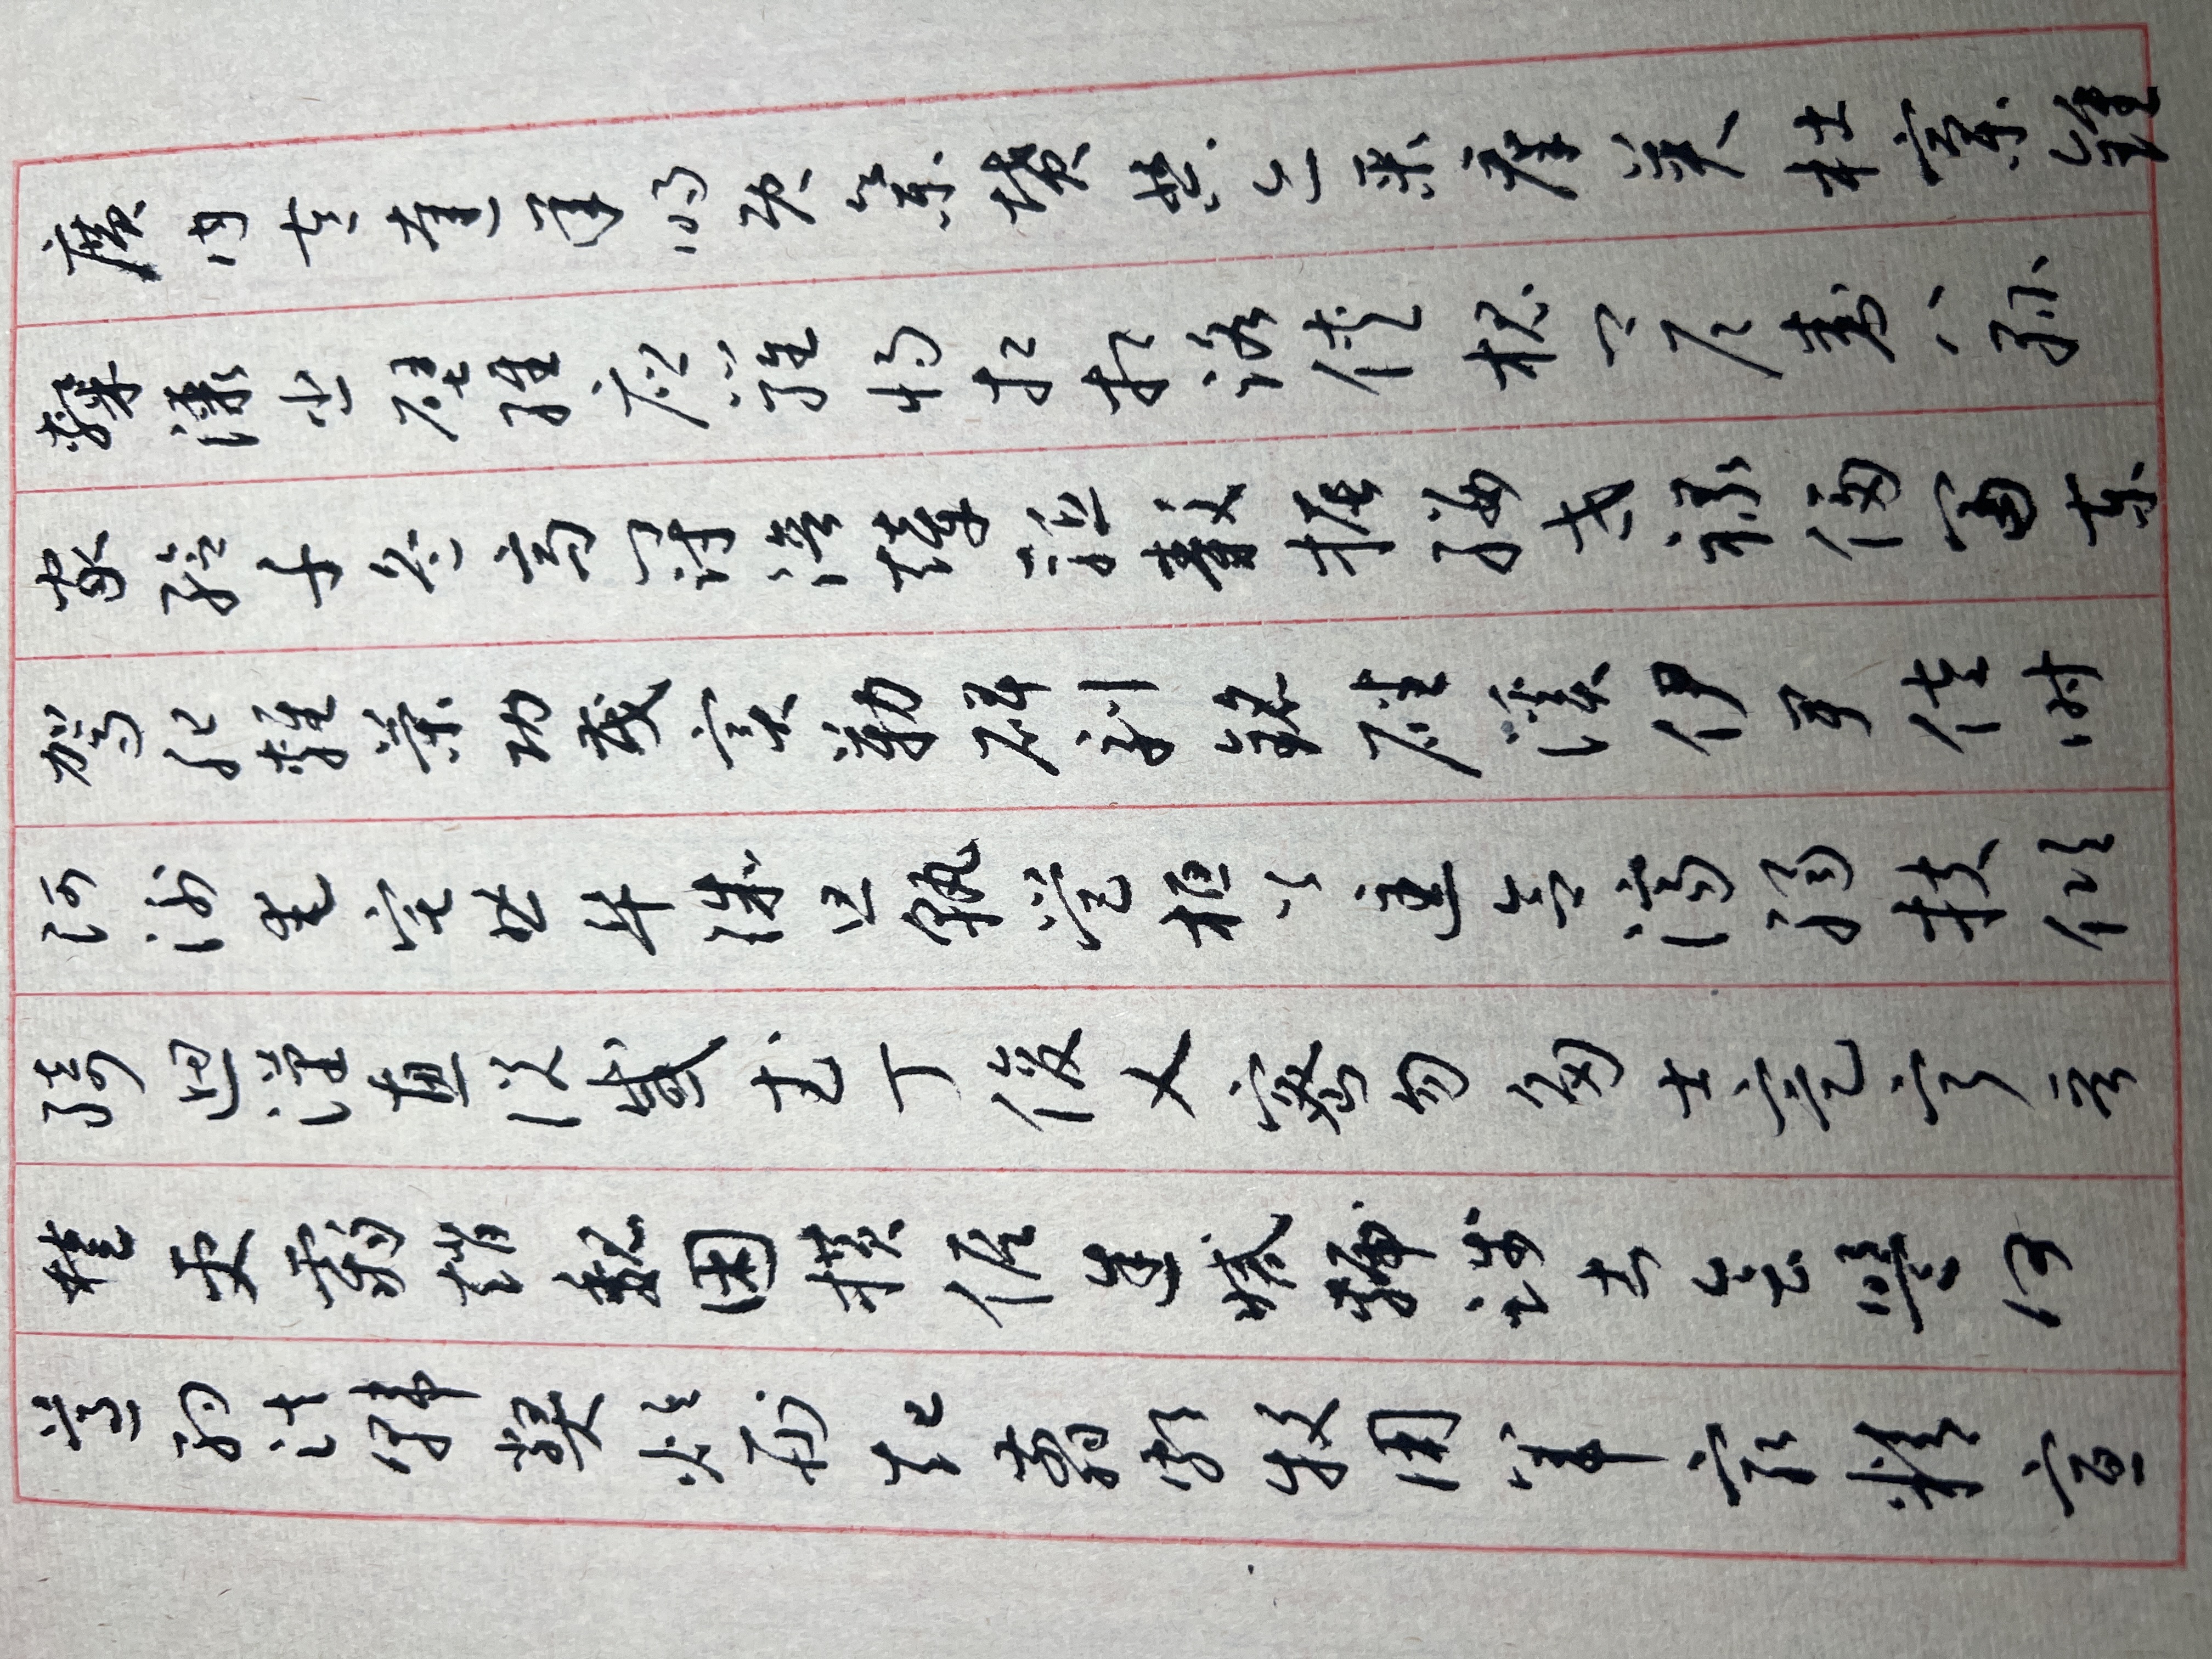 廣內左達承明既集墳典亦聚群英杜稾鍾
隸漆書壁經府羅將相相路俠槐卿戶封八縣
家給千兵高冠陪輦驅轂振纓世祿侈富車
駕肥輕策功茂實勒碑刻銘磻溪伊尹佐時
阿衡奄宅曲阜微旦孰營桓公匡合濟弱扶傾
綺迴漢惠說感武丁俊乂密勿多士寔寧晉
楚更霸趙魏困橫假途滅虢踐土會盟何
遵約法韓弊煩刑起翦頗牧用軍最精宣